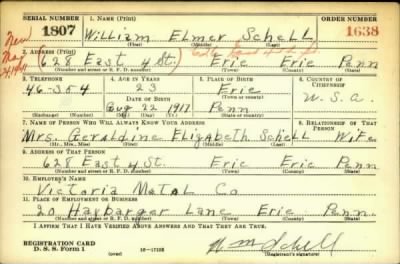 SERIAL NUMBER 1. NAME (Print) ORDER NUMBER
1807 William Elmer Schell 1638
(First) (Middle) (Last)
New
2. ADDRESS (Print)
628 East 4 St. Erie Erie Penn
(Number and street or R. F. D. number) (Town) (County) (State)
3. TELEPHONE 4. AGE IN YEARS 5. PLACE OF BIRTH 6. COUNTRY OF CITIZENSHIP
46-354 23 Erie
DATE OF BIRTH (Town or county) U.S.A.
Aug 22 1917 Penn
(Mo.) (Day) (Yr.) (State or country)
7. NAME OF PERSON WHO WILL ALWAYS KNOW YOUR ADDRESS 8. RELATIONSHIP OF THAT PERSON
Mrs. Geraldine Elizabeth Schell Wife
(Mr., Mrs., Miss) (First) (Middle) (Last)
9. ADDRESS OF THAT PERSON
628 East 4 St. Erie Erie Penn
(Number and street or R. F. D. number) (Town) (County) (State)
10. EMPLOYER'S NAME
Victoria Metal Co
11. PLACE OF EMPLOYMENT OR BUSINESS
20 Harbarger Lane Erie Penn.
(Number and street or R. F. D. number) (Town) (County) (State)
I AFFIRM THAT I HAVE VERIFIED ABOVE ANSWERS AND THAT THEY ARE TRUE.
REGISTRATION CARD
D. S. S. Form 1 (over) Wm Schell
(Registrant's signature)